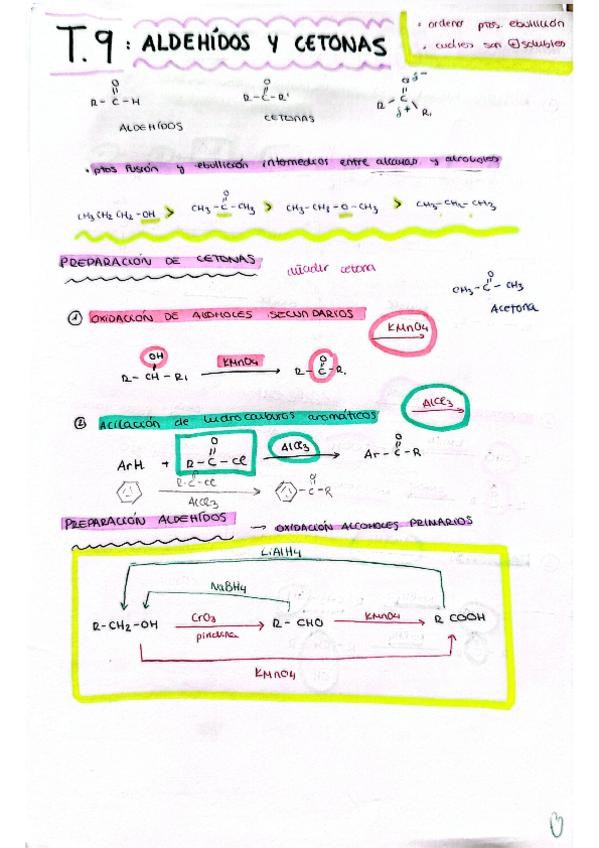 T.9: ALDEHÍDOS Y CETONAS
· ordenar ptos. ebullición
· cuáles son ⊕ solubles
O
R - C - H
ALDEHÍDOS
O
R - C - R'
CETONAS
O δ-
R C δ+ R,
· ptos fusión y ebullición intermedios entre alcanos y alcoholes
CH3 CH2 CH2 - OH > CH3 - C - CH3 > CH3 - CH2 - O - CH3 > CH3 - CH2 - CH3
O
PREPARACIÓN DE CETONAS
añadir cetona
O
CH3 - C - CH3
Acetona
① OXIDACIÓN DE ALCOHOLES SECUNDARIOS
KMnO4
OH
R - CH - R,
KMnO4
O
R - C - R,
② Acilación de hidrocarburos aromáticos
AlCl3
ArH + R - C - Cl
O
AlCl3
O
Ar - C - R
O
R - C - Cl
AlCl3
O
- C - R
PREPARACIÓN ALDEHÍDOS → OXIDACIÓN ALCOHOLES PRIMARIOS
LiAlH4
NaBH4
R - CH2 - OH CrO3 R - CHO KMnO4 R COOH
piridina
KMnO4